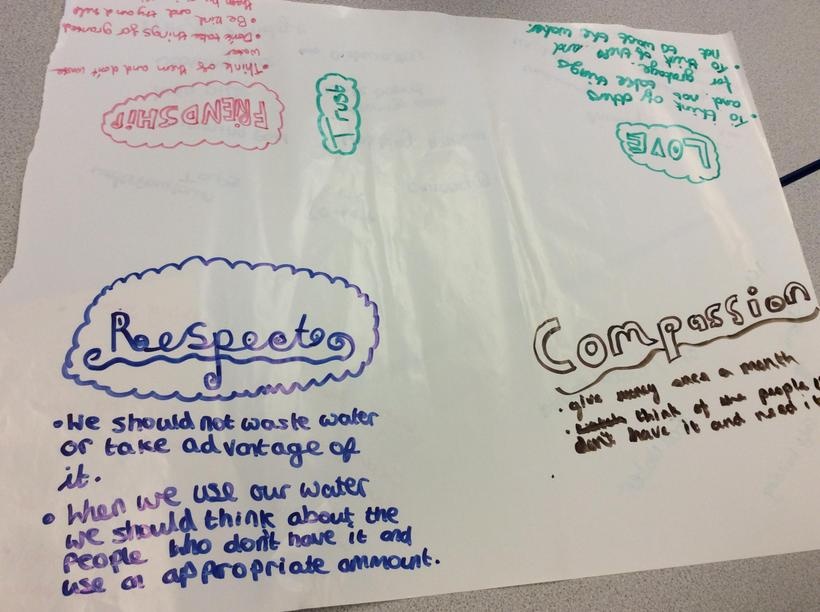 Respect
• We should not waste water
or take advantage of
it.
• When we use our water
we should think about the
people who don't have it and
use a appropriate ammount.
Compassion
• give money once a month
• think of the people
don't have it and need it
Trust
FRIENDSHIP
• Think of them and don't waste
water
• Don't take things for granted
• Be kind and try and help
LOVE
• To think of others
and not take things
for grabage.
• To think of them and
not to wast the water.